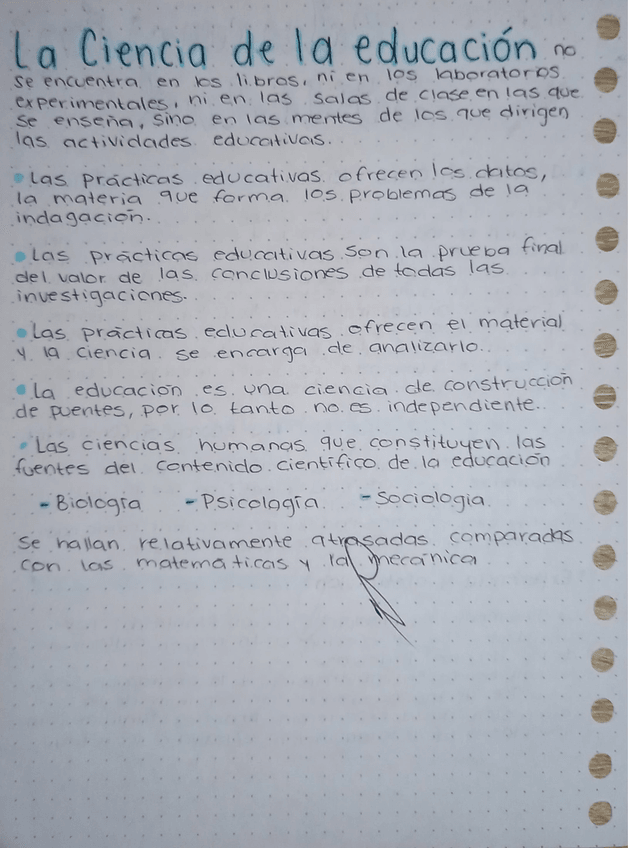 La Ciencia de la educación no
se encuentra en los libros, ni en los laboratorios
experimentales, ni en las salas de clase en las que
se enseña, sino en las mentes de los que dirigen
las actividades educativas.
Las prácticas educativas ofrecen los datos,
la materia que forma los problemas de la
indagación.
Las prácticas educativas son la prueba final
del valor de las conclusiones de todas las
investigaciones.
Las prácticas educativas ofrecen el material
y la ciencia se encarga de analizarlo.
La educación es una ciencia de construcción
de puentes, por lo tanto no es independiente.
Las ciencias humanas que constituyen las
fuentes del contenido científico de la educación
-Biología -Psicología -Sociologia
se hallan relativamente atrasadas comparadas
con las matemáticas y la mecánica